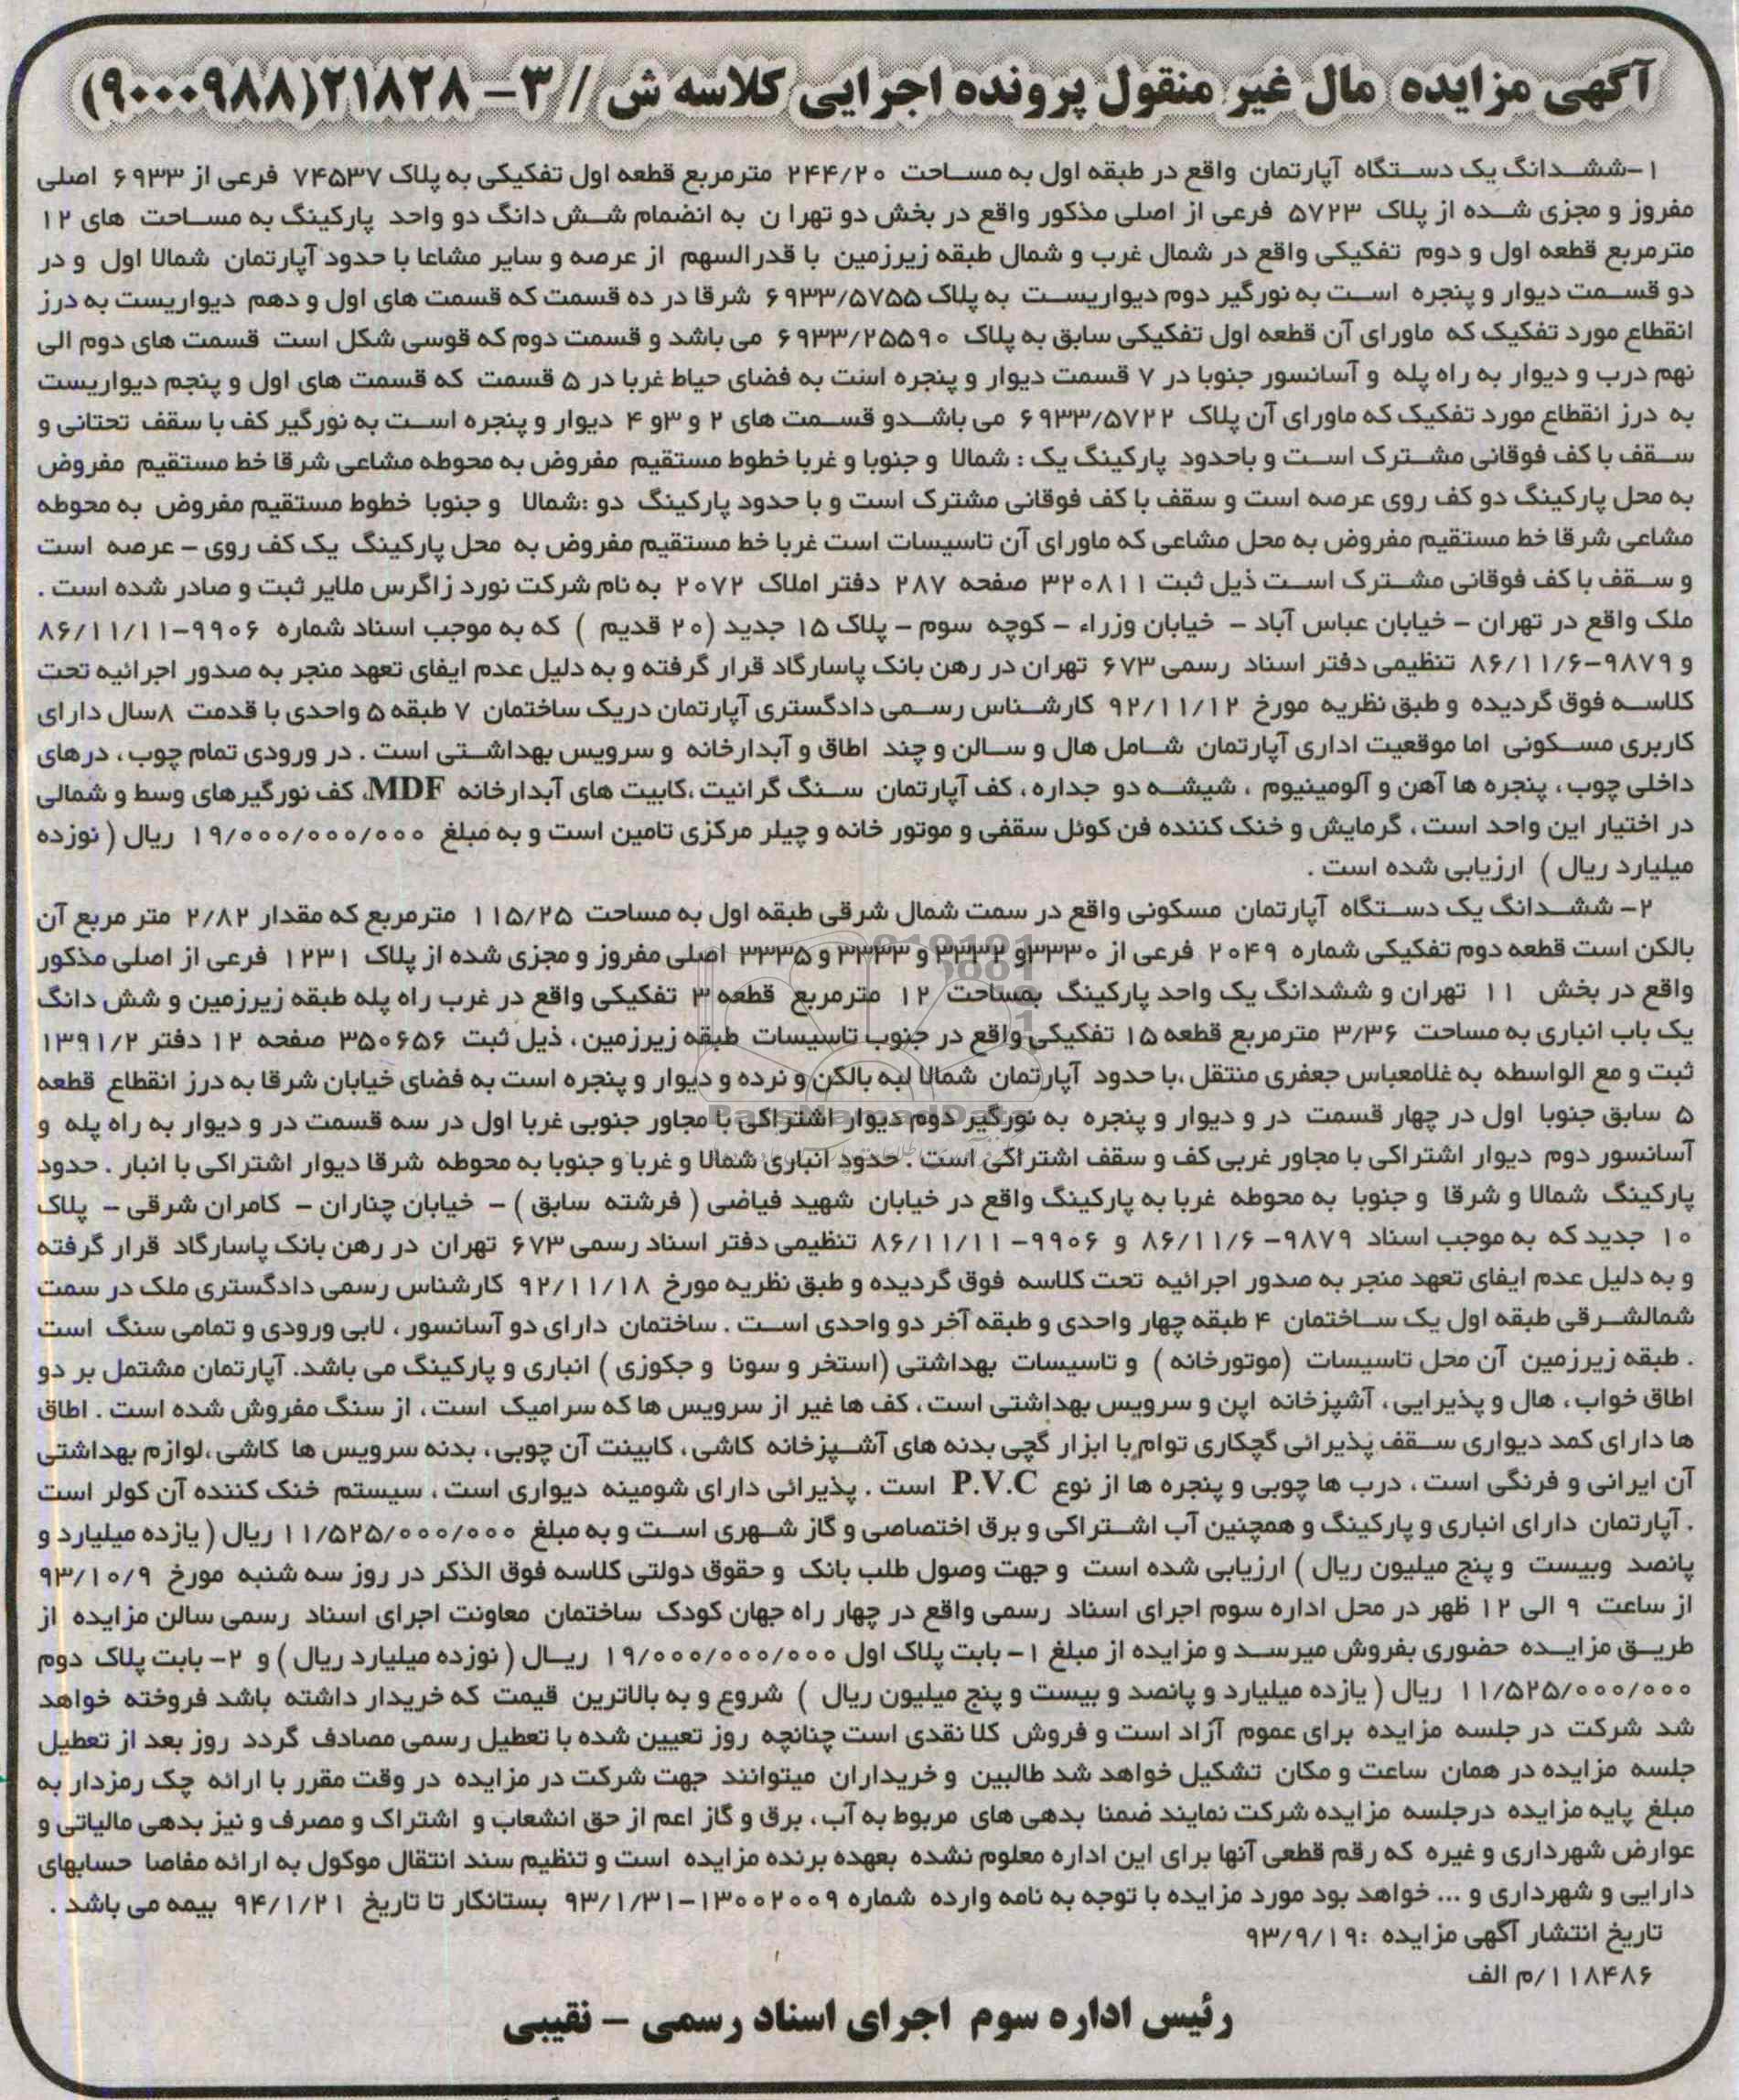 آگهی مزایده مال غیر منقول پرونده اجرایی کلاسه ش / ۳- ۲۱۸۲۸(۹۰۰۰۹۸۸)
۱-ششدانگ یک دستگاه آپارتمان واقع در طبقه اول به مساحت ۲۴۴/۲۰ مترمربع قطعه اول تفکیکی به پلاک ۷۴۵۳۷ فرعی از ۶۹۳۳ اصلی
مفروز و مجزی شده از پلاک ۵۷۲۳ فرعی از اصلی مذکور واقع در بخش دو تهرا ن به انضمام شش دانگ دو واحد پارکینگ به مساحت های ۱۲
مترمربع قطعه اول و دوم تفکیکی واقع در شمال غرب و شمال طبقه زیرزمین با قدرالسهم از عرصه و سایر مشاعا با حدود آپارتمان شمالا اول و در
دو قسمت دیوار و پنجره است به نورگیر دوم دیواریست به پلاک ۶۹۳۳/۵۷۵۵ شرقا در ده قسمت که قسمت های اول و دهم دیواریست به درز
انقطاع مورد تفکیک که ماورای آن قطعه اول تفکیکی سابق به پلاک ۶۹۳۳/۲۵۵۹۰ می باشد و قسمت دوم که قوسی شکل است قسمت های دوم الی
نهم درب و دیوار به راه پله و آسانسور جنوبا در ۷ قسمت دیوار و پنجره است به فضای حیاط غربا در ۵ قسمت که قسمت های اول و پنجم دیواریست
به درز انقطاع مورد تفکیک که ماورای آن پلاک ۶۹۳۳/۵۷۲۲ می باشدو قسمت های ۲ و ۳و ۴ دیوار و پنجره است به نورگیر کف با سقف تحتانی و
سقف با کف فوقانی مشترک است و باحدود پارکینگ یک : شمالا و جنوبا و غربا خطوط مستقیم مفروض به محوطه مشاعی شرقا خط مستقیم مفروض
به محل پارکینگ دو کف روی عرصه است و سقف با کف فوقانی مشترک است و با حدود پارکینگ دو :شمالا و جنوبا خطوط مستقیم مفروض به محوطه
مشاعی شرقا خط مستقیم مفروض به محل مشاعی که ماورای آن تاسیسات است غربا خط مستقیم مفروض به محل پارکینگ یک کف روی - عرصه است
و سقف با کف فوقانی مشترک است ذیل ثبت ۳۲۰۸۱۱ صفحه ۲۸۷ دفتر املاک ۲۰۷۲ به نام شرکت نورد زاگرس ملایر ثبت و صادر شده است .
ملک واقع در تهران - خیابان عباس آباد - خیابان وزراء - کوچه سوم - پلاک ۱۵ جدید (۲۰ قدیم ) که به موجب اسناد شماره ۹۹۰۶-۸۶/۱۱/۱۱
و ۹۸۷۹-۸۶/۱۱/۶ تنظیمی دفتر اسناد رسمی ۶۷۳ تهران در رهن بانک پاسارگاد قرار گرفته و به دلیل عدم ایفای تعهد منجر به صدور اجرائیه تحت
کلاسه فوق گردیده و طبق نظریه مورخ ۹۲/۱۱/۱۲ کارشناس رسمی دادگستری آپارتمان دریک ساختمان ۷ طبقه ۵ واحدی با قدمت ۸سال دارای
کاربری مسکونی اما موقعیت اداری آپارتمان شامل هال و سالن و چند اطاق و آبدارخانه و سرویس بهداشتی است . در ورودی تمام چوب ، درهای
داخلی چوب ، پنجره ها آهن و آلومینیوم ، شیشه دو جداره ، کف آپارتمان سنگ گرانیت ،کابیت های آبدارخانه MDF، کف نورگیرهای وسط و شمالی
در اختیار این واحد است ، گرمایش و خنک کننده فن کوئل سقفی و موتور خانه و چیلر مرکزی تامین است و به مبلغ ۱۹/۰۰۰/۰۰۰/۰۰۰ ریال ( نوزده
میلیارد ریال ) ارزیابی شده است .
۲- ششدانگ یک دستگاه آپارتمان مسکونی واقع در سمت شمال شرقی طبقه اول به مساحت ۱۱۵/۲۵ مترمربع که مقدار ۲/۸۲ متر مربع آن
بالکن است قطعه دوم تفکیکی شماره ۲۰۴۹ فرعی از ۳۳۳۰و ۳۳۳۲ و ۳۳۳۳ و ۳۳۳۵ اصلی مفروز و مجزی شده از پلاک ۱۲۳۱ فرعی از اصلی مذکور
واقع در بخش ۱۱ تهران و ششدانگ یک واحد پارکینگ بمساحت ۱۲ مترمربع قطعه ۳ تفکیکی واقع در غرب راه پله طبقه زیرزمین و شش دانگ
یک باب انباری به مساحت ۳/۳۶ مترمربع قطعه ۱۵ تفکیکی واقع در جنوب تاسیسات طبقه زیرزمین ، ذیل ثبت ۳۵۰۶۵۶ صفحه ۱۲ دفتر ۱۳۹۱/۲
ثبت و مع الواسطه به غلامعباس جعفری منتقل ،با حدود آپارتمان شمالا لبه بالکن و نرده و دیوار و پنجره است به فضای خیابان شرقا به درز انقطاع قطعه
۵ سابق جنوبا اول در چهار قسمت در و دیوار و پنجره به نورگیر دوم دیوار اشتراکی با مجاور جنوبی غربا اول در سه قسمت در و دیوار به راه پله و
آسانسور دوم دیوار اشتراکی با مجاور غربی کف و سقف اشتراکی است . حدود انباری شمالا و غربا و جنوبا به محوطه شرقا دیوار اشتراکی با انبار . حدود
پارکینگ شمالا و شرقا و جنوبا به محوطه غربا به پارکینگ واقع در خیابان شهید فیاضی ( فرشته سابق ) - خیابان چناران - کامران شرقی - پلاک
۱۰ جدید که به موجب اسناد ۹۸۷۹- ۸۶/۱۱/۶ و ۹۹۰۶- ۸۶/۱۱/۱۱ تنظیمی دفتر اسناد رسمی ۶۷۳ تهران در رهن بانک پاسارگاد قرار گرفته
و به دلیل عدم ایفای تعهد منجر به صدور اجرائیه تحت کلاسه فوق گردیده و طبق نظریه مورخ ۹۲/۱۱/۱۸ کارشناس رسمی دادگستری ملک در سمت
شمالشرقی طبقه اول یک ساختمان ۴ طبقه چهار واحدی و طبقه آخر دو واحدی است . ساختمان دارای دو آسانسور ، لابی ورودی و تمامی سنگ است
. طبقه زیرزمین آن محل تاسیسات (موتورخانه ) و تاسیسات بهداشتی (استخر و سونا و جکوزی ) انباری و پارکینگ می باشد. آپارتمان مشتمل بر دو
اطاق خواب ، هال و پذیرایی ، آشپزخانه اپن و سرویس بهداشتی است ، کف ها غیر از سرویس ها که سرامیک است ، از سنگ مفروش شده است . اطاق
ها دارای کمد دیواری سقف پذیرائی گچکاری توام با ابزار گچی بدنه های آشپزخانه کاشی ، کابینت آن چوبی ، بدنه سرویس ها کاشی ،لوازم بهداشتی
آن ایرانی و فرنگی است ، درب ها چوبی و پنجره ها از نوع P.V.C است . پذیرائی دارای شومینه دیواری است ، سیستم خنک کننده آن کولر است
. آپارتمان دارای انباری و پارکینگ و همچنین آب اشتراکی و برق اختصاصی و گاز شهری است و به مبلغ ۱۱/۵۲۵/۰۰۰/۰۰۰ ریال ( یازده میلیارد و
پانصد وبیست و پنج میلیون ریال ) ارزیابی شده است و جهت وصول طلب بانک و حقوق دولتی کلاسه فوق الذکر در روز سه شنبه مورخ ۹۳/۱۰/۹
از ساعت ۹ الی ۱۲ ظهر در محل اداره سوم اجرای اسناد رسمی واقع در چهار راه جهان کودک ساختمان معاونت اجرای اسناد رسمی سالن مزایده از
طریق مزایده حضوری بفروش میرسد و مزایده از مبلغ ۱- بابت پلاک اول ۱۹/۰۰۰/۰۰۰/۰۰۰ ریال ( نوزده میلیارد ریال ) و ۲- بابت پلاک دوم
۱۱/۵۲۵/۰۰۰/۰۰۰ ریال ( یازده میلیارد و پانصد و بیست و پنج میلیون ریال ) شروع و به بالاترین قیمت که خریدار داشته باشد فروخته خواهد
شد شرکت در جلسه مزایده برای عموم آزاد است و فروش کلا نقدی است چنانچه روز تعیین شده با تعطیل رسمی مصادف گردد روز بعد از تعطیل
جلسه مزایده در همان ساعت و مکان تشکیل خواهد شد طالبین و خریداران میتوانند جهت شرکت در مزایده در وقت مقرر با ارائه چک رمزدار به
مبلغ پایه مزایده درجلسه مزایده شرکت نمایند ضمنا بدهی های مربوط به آب ، برق و گاز اعم از حق انشعاب و اشتراک و مصرف و نیز بدهی مالیاتی و
عوارض شهرداری و غیره که رقم قطعی آنها برای این اداره معلوم نشده بعهده برنده مزایده است و تنظیم سند انتقال موکول به ارائه مفاصا حسابهای
دارایی و شهرداری و ... خواهد بود مورد مزایده با توجه به نامه وارده شماره ۱۳۰۰۲۰۰۹-۹۳/۱/۳۱ بستانکار تا تاریخ ۹۴/۱/۲۱ بیمه می باشد .
تاریخ انتشار آگهی مزایده :۹۳/۹/۱۹
۱۱۸۴۸۶/م الف
رئیس اداره سوم اجرای اسناد رسمی - نقیبی